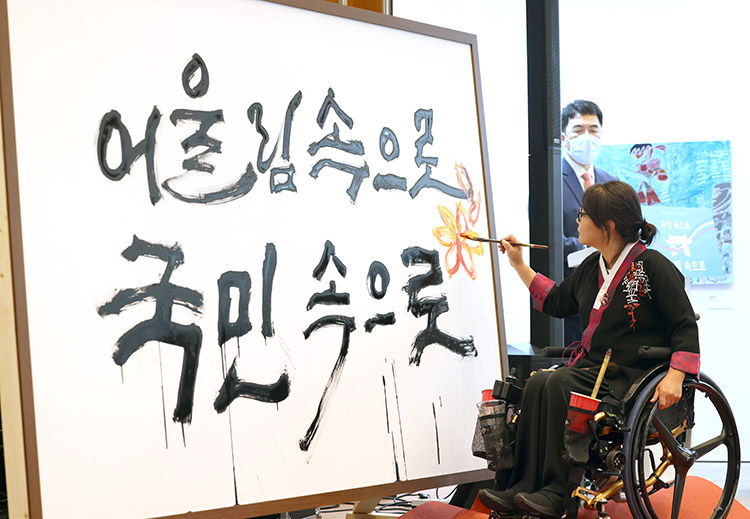 어울림 속으로
국민 속으로
국민 속으로
속으로